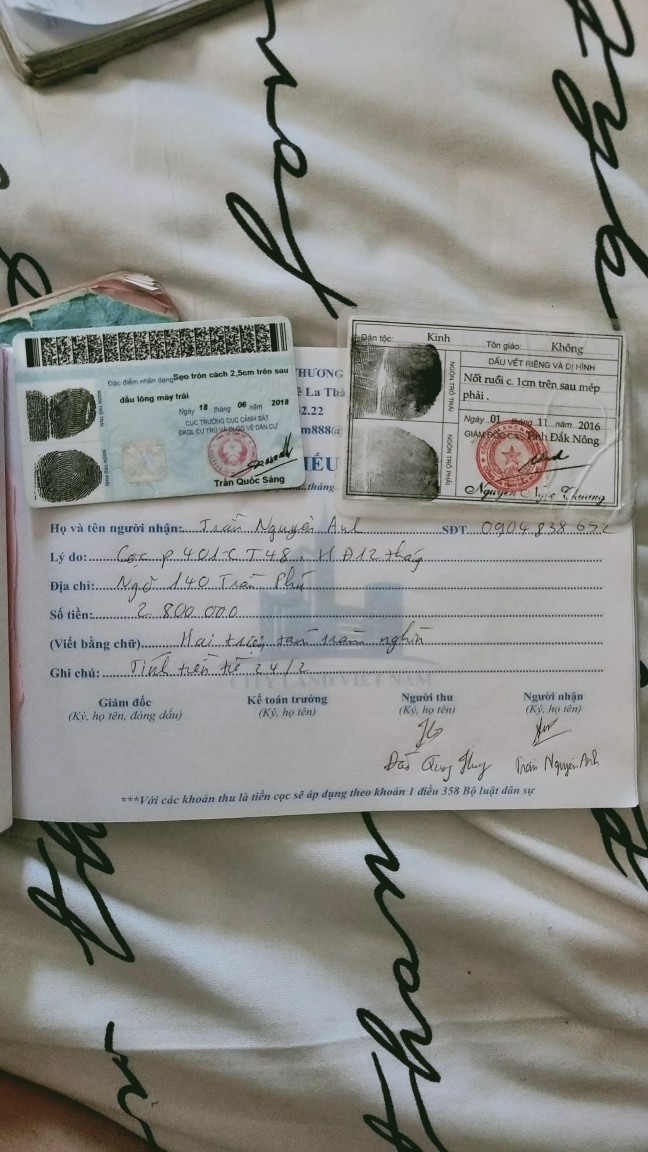 Đặc điểm nhân dạng: Sẹo tròn cách 2,5cm trên sau
đầu lông mày trái
Ngày 18 tháng 06 năm 2018
CỤC TRƯỞNG CỤC CẢNH SÁT
ĐKQL CƯ TRÚ VÀ DLQG VỀ DÂN CƯ
Trần Quốc Sảng
NGÓN TRỎ TRÁI
NGÓN TRỎ PHẢI
Dân tộc: Kinh Tôn giáo: Không
DẤU VẾT RIÊNG VÀ DỊ HÌNH
Nốt ruồi c. 1cm trên sau mép
phải .
Ngày 01 tháng 11 năm 2016
GIÁM ĐỐC CA Tỉnh Đắk Nông
NGÓN TRỎ TRÁI
NGÓN TRỎ PHẢI
HƯƠNG
ê La Thà
2.22
m888@
IẾU
tháng
Họ và tên người nhận: Trần Nguyên Anh SĐT 0904 838 652
Lý do: Cọc p 401 T48 HĐ12 tháng
Địa chỉ: Ngõ 140 Trần Phú
Số tiền: 2 800 000
(Viết bằng chữ) Hai triệu tám trăm nghìn
Ghi chú: Tính tiền từ 24/2
CITY LAND VIET NAM
Giám đốc Kế toán trưởng Người thu Người nhận
(Ký, họ tên, đóng dấu) (Ký, họ tên) (Ký, họ tên) (Ký, họ tên)
Đào Quang Huy Trần Nguyên Anh
***Với các khoản thu là tiền cọc sẽ áp dụng theo khoản 1 điều 358 Bộ luật dân sự